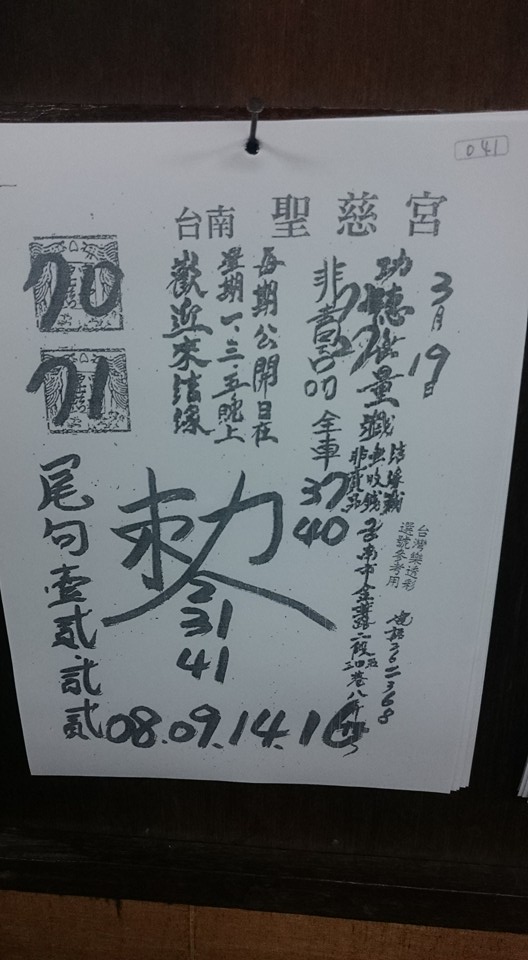 041
台南 聖慈宮
3月19日
功德無量
結緣義
無收錢
非賣品
台灣樂透彩
選號參考用
電話262368
台南市金華路二段
非賣品
全車
37
40
每期公開日在
星期一、三、五晚上
歡迎來結緣
70
71
敕令
31
41
尾句壹貳.貳貳
08.09.14.16